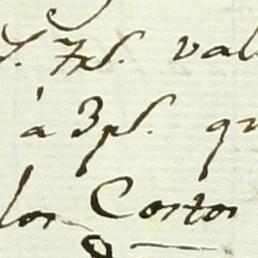 7ps. val
à 3ps. qu
los Cortos